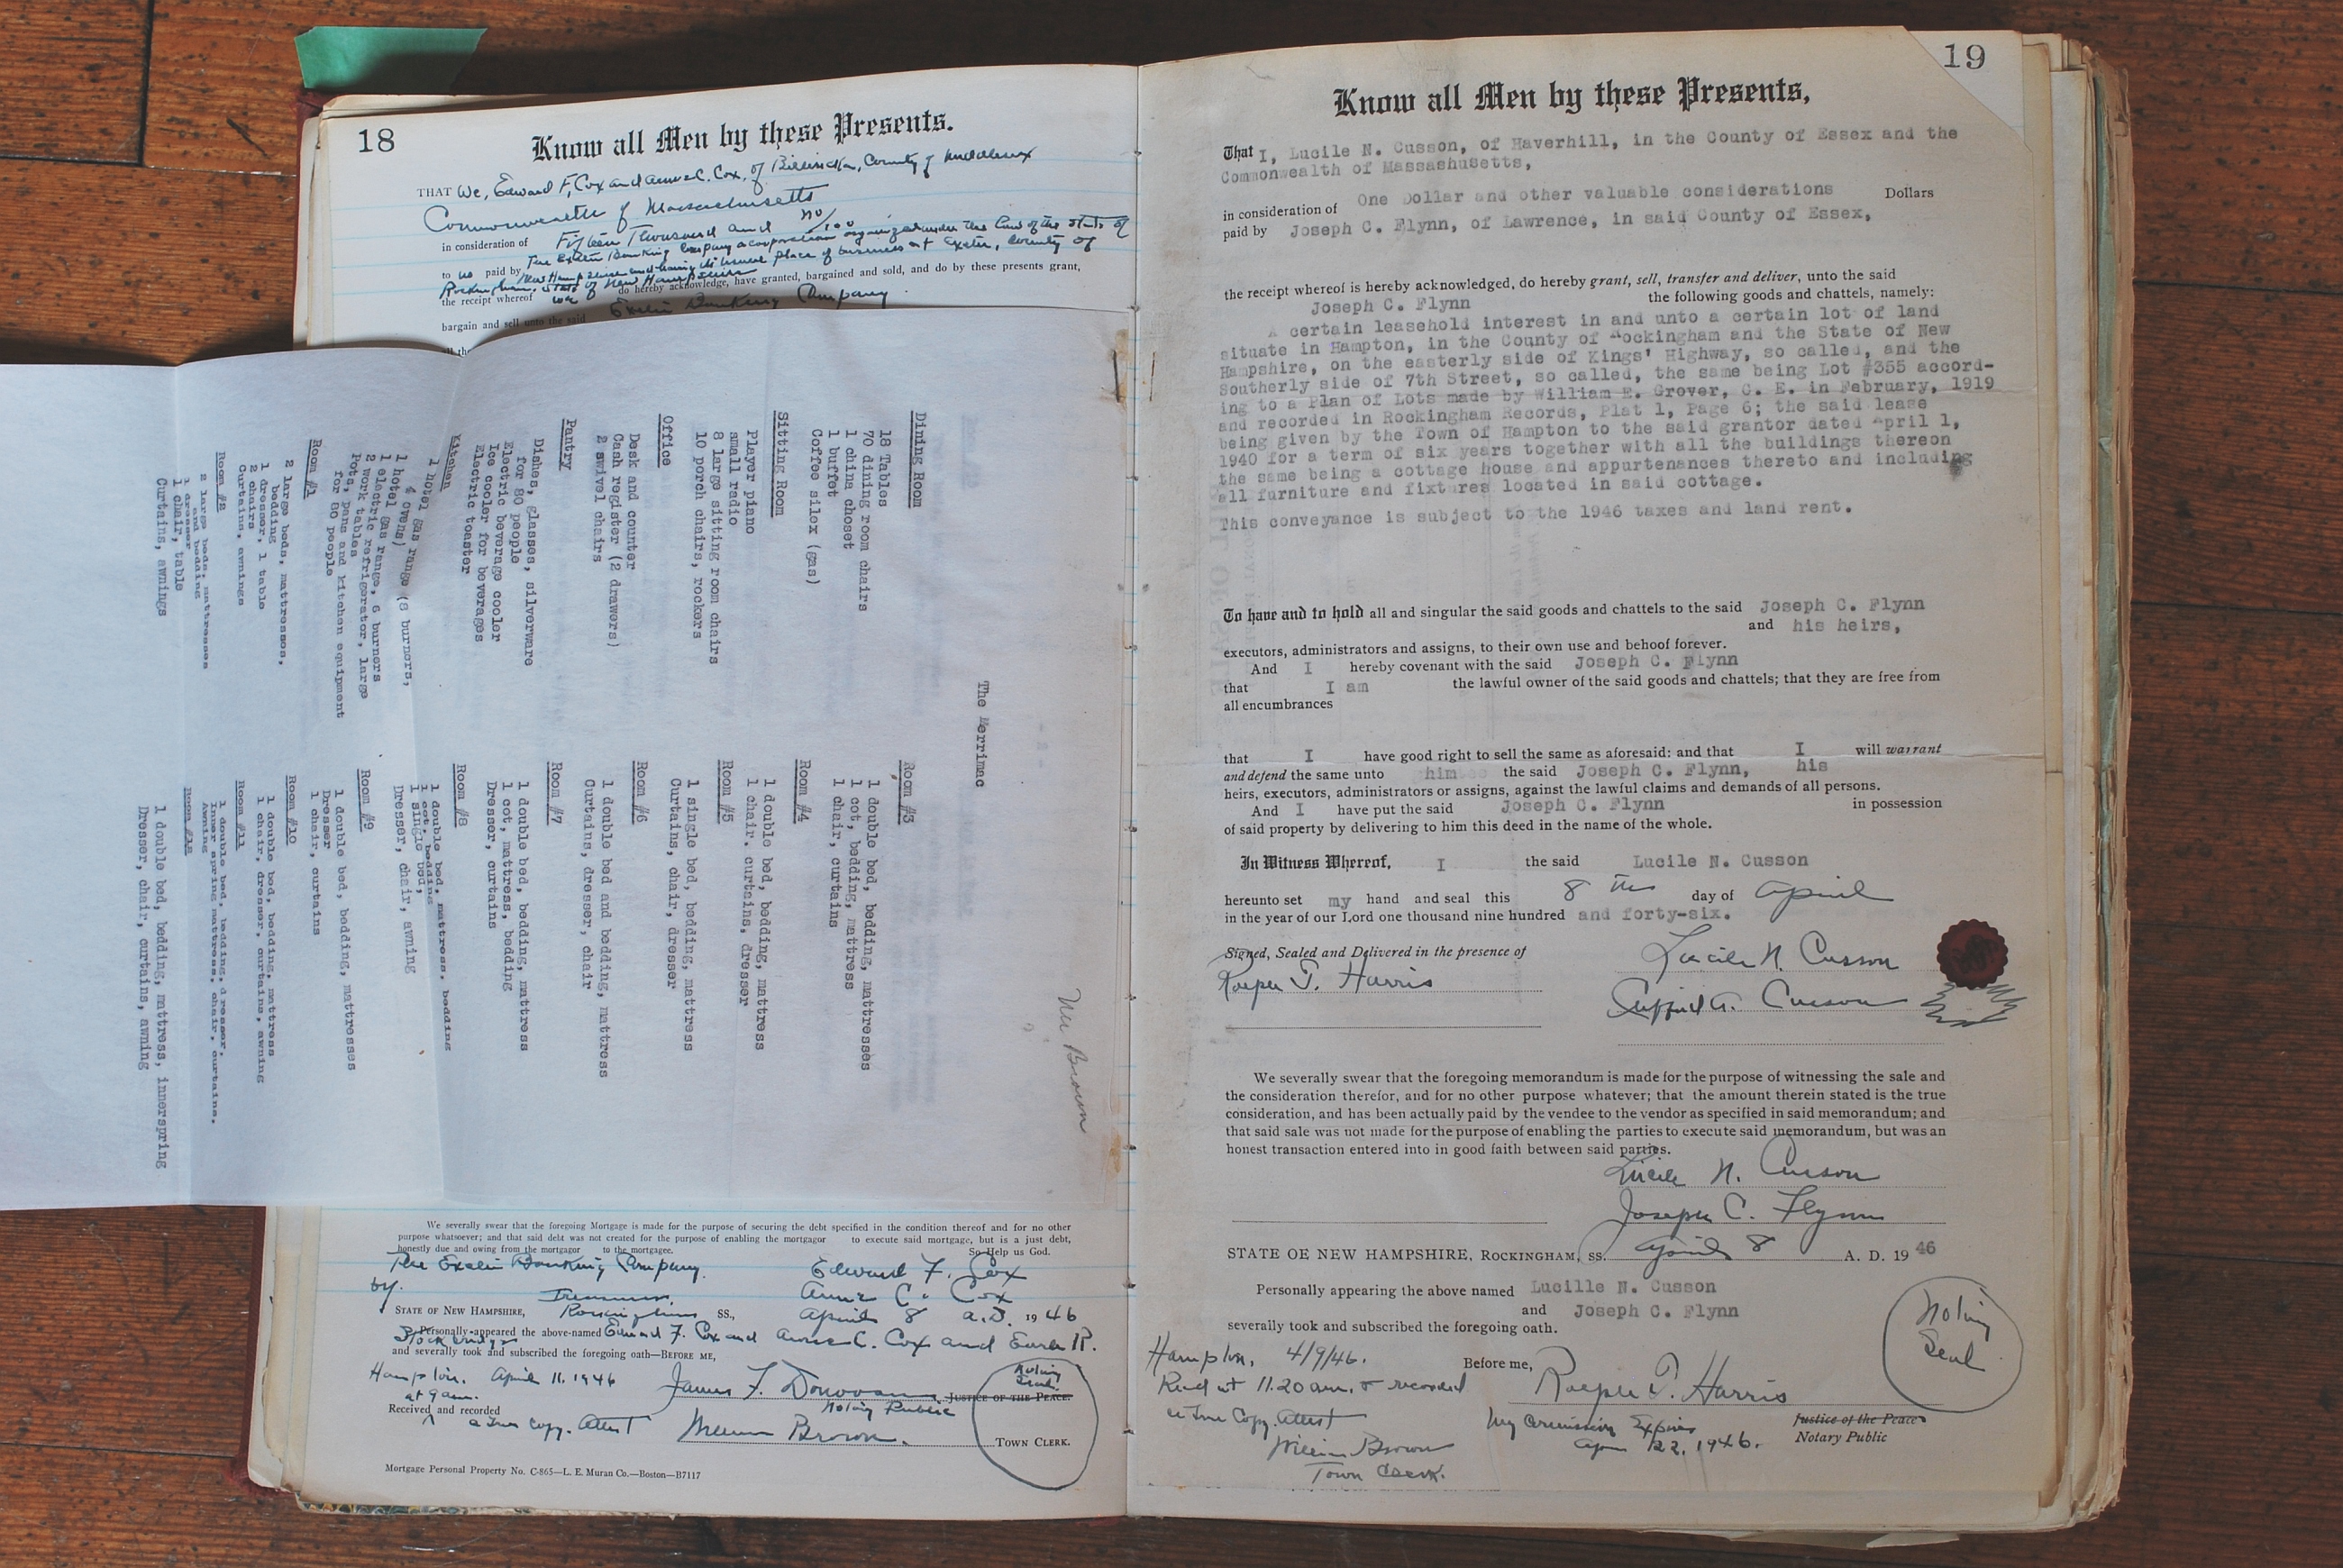 18
Know all Men by these Presents.
THAT We, Edward F. Cox and Anna C. Cox, of Billerica, County of Middlesex
Commonwealth of Massachusetts
in consideration of Fifteen Thousand and no/100
to us paid by The Exeter Banking Company a corporation organized under the laws of the State of
New Hampshire and having its usual place of business at Exeter, County of
Rockingham, State of New Hampshire
the receipt whereof we do hereby acknowledge, have granted, bargained and sold, and do by these presents grant,
bargain and sell unto the said Exeter Banking Company
The Merrimac
Dining Room
18 Tables
70 dining room chairs
1 china closet
1 buffet
Coffee silex (gas)
Sitting Room
Player piano
small radio
8 large sitting room chairs
10 porch chairs, rockers
Office
Desk and counter
Cash register (2 drawers)
2 swivel chairs
Pantry
Dishes, glasses, silverware
for 80 people
Electric beverage cooler
Ice cooler for beverages
Electric toaster
Kitchen
1 hotel gas range (8 burners,
4 ovens)
1 hotel gas range, 6 burners
1 electric refrigerator, large
2 work tables
Pots, pans and kitchen equipment
for 80 people
Room #1
2 large beds, mattresses,
bedding
1 dresser, 1 table
2 chairs
Curtains, awnings
Room #2
2 large beds, mattresses
and bedding
1 dresser
1 chair, table
Curtains, awnings
Room #3
1 double bed, bedding, mattresses
1 cot, bedding, mattress
1 chair, curtains
Room #4
1 double bed, bedding, mattress
1 chair. curtains, dresser
Room #5
1 single bed, bedding, mattress
Curtains, chair, dresser
Room #6
1 double bed and bedding, mattress
Curtains, dresser, chair
Room #7
1 double bed, bedding, mattress
1 cot, mattress, bedding
Dresser, curtains
Room #8
1 double bed, mattress, bedding
1 cot, bedding
1 single bed,
Dresser, chair, awning
Room #9
1 double bed, bedding, mattresses
Dresser
1 chair, curtains
Room #10
1 double bed, bedding, mattress
1 chair, dresser, curtains, awning
Room #11
1 double bed, bedding, dresser,
inner spring mattress, chair, curtains.
Awning
Room #12
1 double bed, bedding, mattress, innerspring
Dresser, chair, curtains, awning
Wm Brown
We severally swear that the foregoing Mortgage is made for the purpose of securing the debt specified in the condition thereof and for no other
purpose whatsoever; and that said debt was not created for the purpose of enabling the mortgagor to execute said mortgage, but is a just debt,
honestly due and owing from the mortgagor to the mortgagee. So Help us God.
The Exeter Banking Company. Edward F. Cox
by. Anna C. Cox
Treasurer.
STATE OF NEW HAMPSHIRE, Rockingham SS., April 8 A.D. 1946
Personally appeared the above-named Edward F. Cox and Anna C. Cox and Earle R.
Stockbridge
and severally took and subscribed the foregoing oath—BEFORE ME,
Hampton. April 11. 1946
at 9 am.
James F. Donovan JUSTICE OF THE PEACE.
Notary Public
Notary
Seal.
Received and recorded
a True Copy. Attest William Brown. TOWN CLERK.
Mortgage Personal Property No. C-865—L. E. Muran Co.—Boston—B7117
19
Know all Men by these Presents,
That I, Lucile N. Cusson, of Haverhill, in the County of Essex and the
Commonwealth of Massashusetts,
in consideration of One Dollar and other valuable considerations Dollars
paid by Joseph C. Flynn, of Lawrence, in said County of Essex,
the receipt whereof is hereby acknowledged, do hereby grant, sell, transfer and deliver, unto the said
Joseph C. Flynn the following goods and chattels, namely:
A certain leasehold interest in and unto a certain lot of land
situate in Hampton, in the County of Rockingham and the State of New
Hampshire, on the easterly side of Kings' Highway, so called, and the
Southerly side of 7th Street, so called, the same being Lot #355 accord-
ing to a Plan of Lots made by William E. Grover, C. E. in February, 1919
and recorded in Rockingham Records, Plat 1, Page 6; the said lease
being given by the Town of Hampton to the said grantor dated April 1,
1940 for a term of six years together with all the buildings thereon
the same being a cottage house and appurtenances thereto and including
all furniture and fixtures located in said cottage.
This conveyance is subject to the 1946 taxes and land rent.
To have and to hold all and singular the said goods and chattels to the said Joseph C. Flynn
and his heirs,
executors, administrators and assigns, to their own use and behoof forever.
And I hereby covenant with the said Joseph C. Flynn
that I am the lawful owner of the said goods and chattels; that they are free from
all encumbrances
that I have good right to sell the same as aforesaid: and that I will warrant
and defend the same unto him the said Joseph C. Flynn, his
heirs, executors, administrators or assigns, against the lawful claims and demands of all persons.
And I have put the said Joseph C. Flynn in possession
of said property by delivering to him this deed in the name of the whole.
In Witness Whereof, I the said Lucile N. Cusson
hereunto set my hand and seal this 8th day of April
in the year of our Lord one thousand nine hundred and forty-six.
Signed, Sealed and Delivered in the presence of Lucile N. Cusson
Roeper T. Harris A. Cusson
We severally swear that the foregoing memorandum is made for the purpose of witnessing the sale and
the consideration therefor, and for no other purpose whatever; that the amount therein stated is the true
consideration, and has been actually paid by the vendee to the vendor as specified in said memorandum; and
that said sale was not made for the purpose of enabling the parties to execute said memorandum, but was an
honest transaction entered into in good faith between said parties.
Lucile N. Cusson
Joseph C. Flynn
STATE OF NEW HAMPSHIRE, ROCKINGHAM, SS. April 8 A. D. 1946
Personally appearing the above named Lucille N. Cusson
and Joseph C. Flynn
severally took and subscribed the foregoing oath.
Notary
Seal
Hampton, 4/9/46. Before me, T. Harris
Rec'd at 11.20 am. & recorded
a True Copy. Attest My Commission Expires Justice of the Peace
22, 1946. Notary Public
William Brown
Town Clerk.